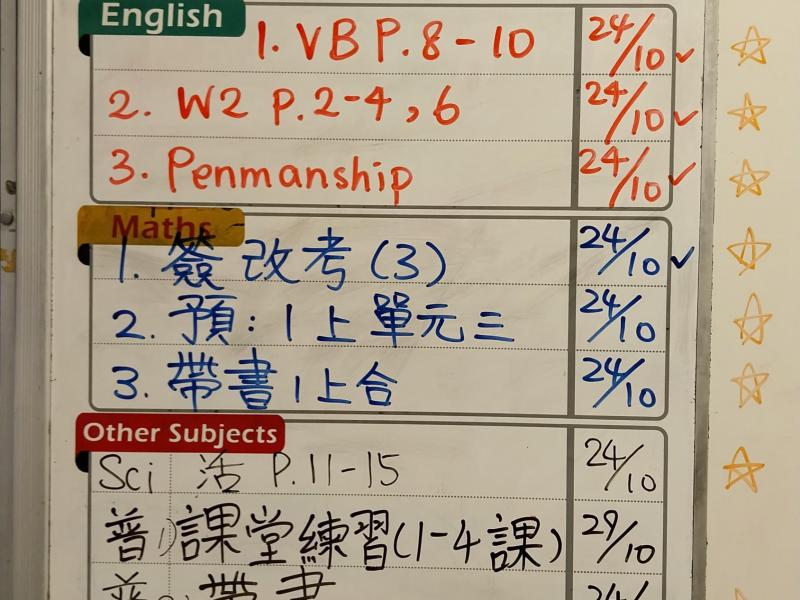 English
1. VB P.8-10 24/10 ✓
2. W2 P.2-4, 6 24/10 ✓
3. Penmanship 24/10 ✓
Maths
1. 簽 改考(3) 24/10 ✓
2. 預: 1上單元三 24/10
3. 帶書1上合 24/10
Other Subjects
Sci 活 P.11-15 24/10
普1)課堂練習(1-4課) 29/10
普 帶書 24/